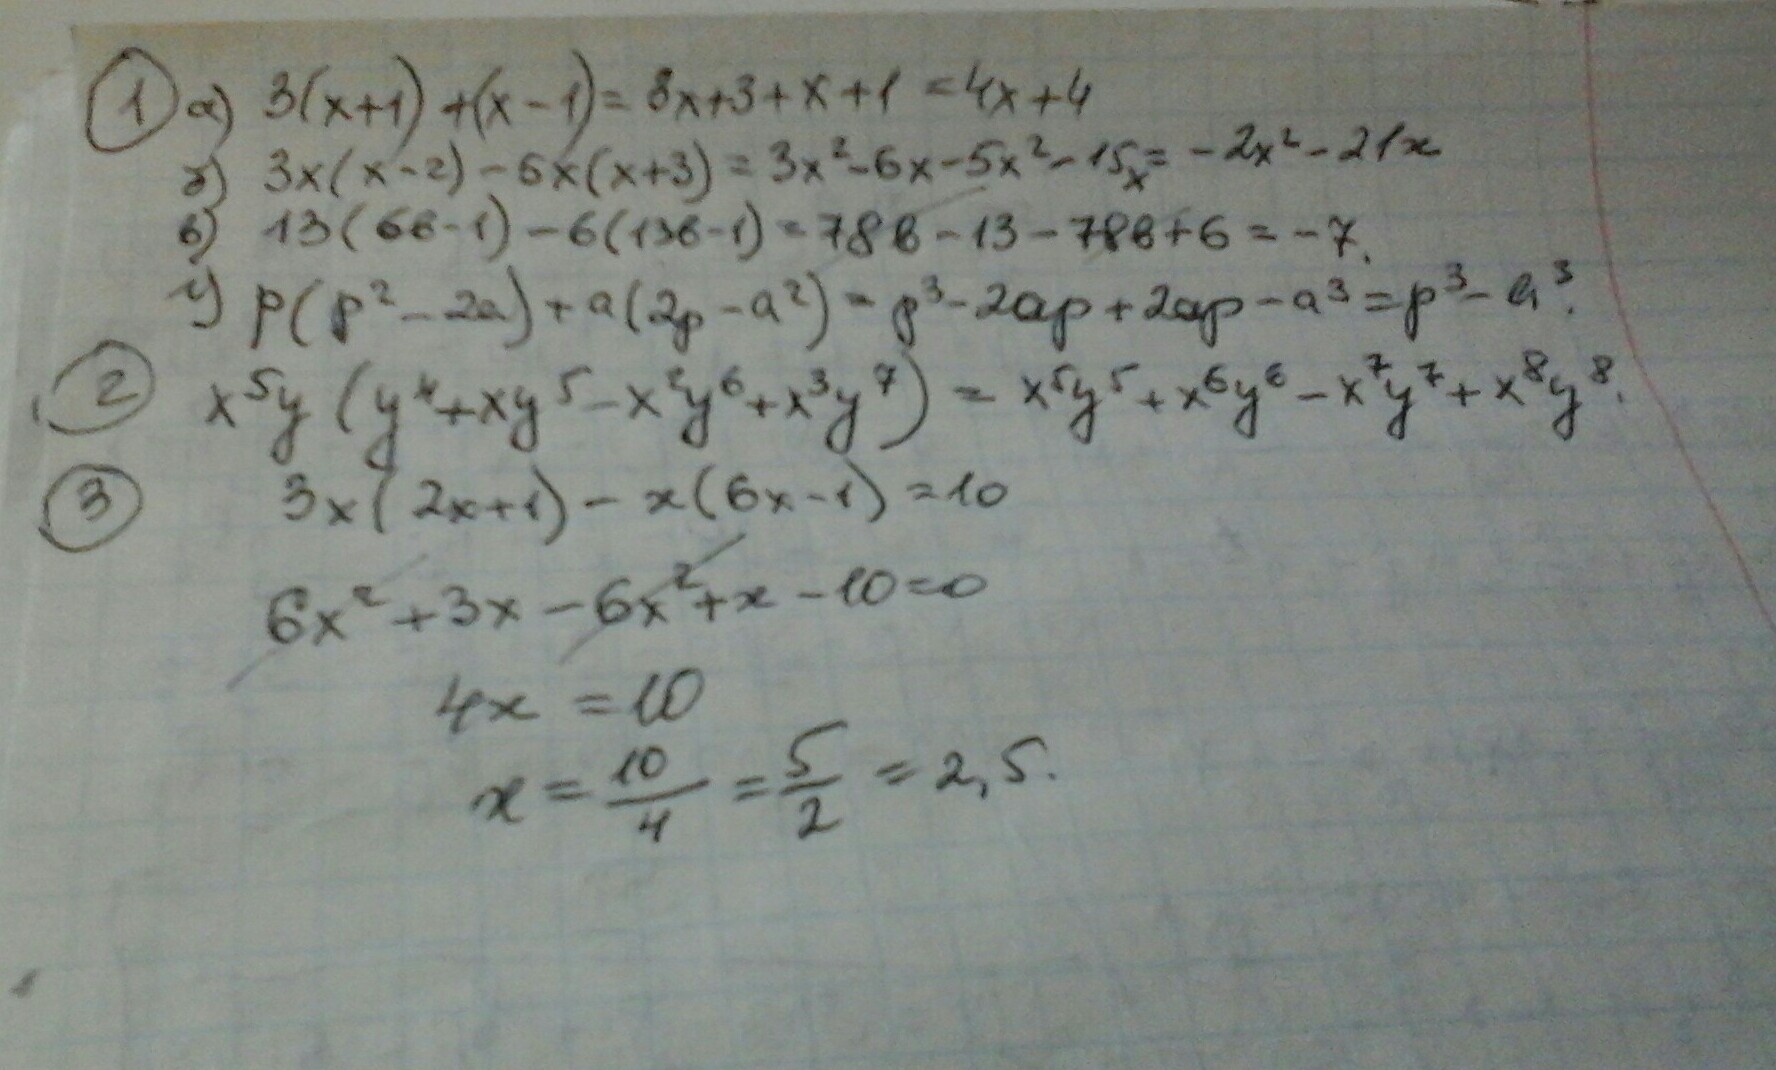 1 а) 3(x+1)+(x-1)=3x+3+x+1=4x+4
б) 3x(x-2)-5x(x+3)=3x²-6x-5x²-15x=-2x²-21x
в) 13(6в-1)-6(13в-1)=78в-13-78в+6=-7.
г) p(p²-2a)+a(2p-a²)=p³-2ap+2ap-a³=p³-a³.
2 x⁵y(y⁴+xy⁵-x²y⁶+x³y⁷)=x⁵y⁵+x⁶y⁶-x⁷y⁷+x⁸y⁸.
3 3x(2x+1)-x(6x-1)=10
6x²+3x-6x²+x-10=0
4x=10
x=10/4=5/2=2,5.